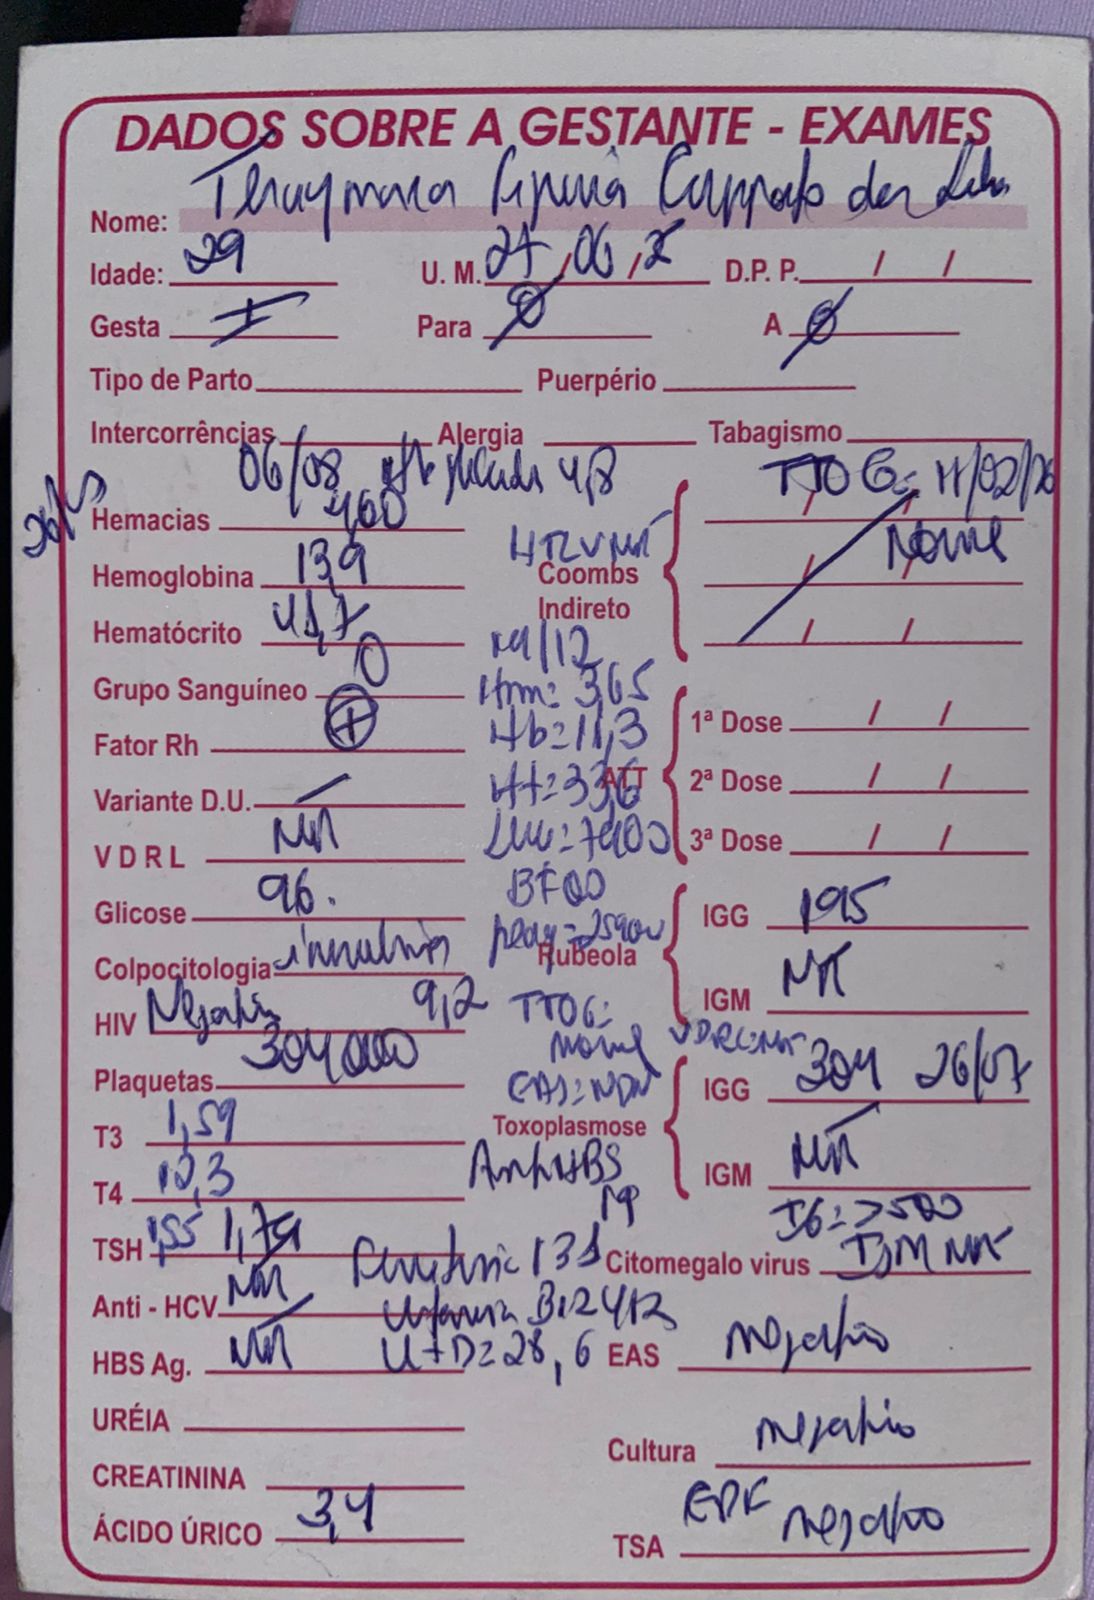 DADOS SOBRE A GESTANTE - EXAMES
Nome:
Idade: 29 U. M. 27/06/ D. P. P. / /
Gesta I Para Ø A Ø
Tipo de Parto Puerpério
Intercorrências Alergia Tabagismo
06/08 4,8 TTOG: 11/02/26
Hemacias 460
Hemoglobina 13,9
Hematócrito 41,7
HTLV NR
Coombs Indireto / / Normal
Grupo Sanguíneo O
Fator Rh +
Variante D.U. —
V D R L NR
Glicose 96.
Colpocitologia
HIV Negativo 9,2
Plaquetas 304000
T3 1,59
T4 10,3
TSH 1,55 1,79
Anti - HCV NR
HBS Ag. NR
URÉIA
CREATININA
ÁCIDO ÚRICO 3,4
19/12
Hm: 3,65
Hb=11,3
Ht=33,6
Leuc=7900
TTOG:
normal
VDRL: NR
EAS=NDN
Anti HBS
Ferritina 131
Vitamina B12 412
Vit D=28,6
ATT
1ª Dose / /
2ª Dose / /
3ª Dose / /
Rubeola
IGG 195
IGM NR
Toxoplasmose
IGG 304 26/07
IGM NR
IG: >500
Citomegalo virus IGM NR
EAS negativo
Cultura negativo
EPF negativo
TSA